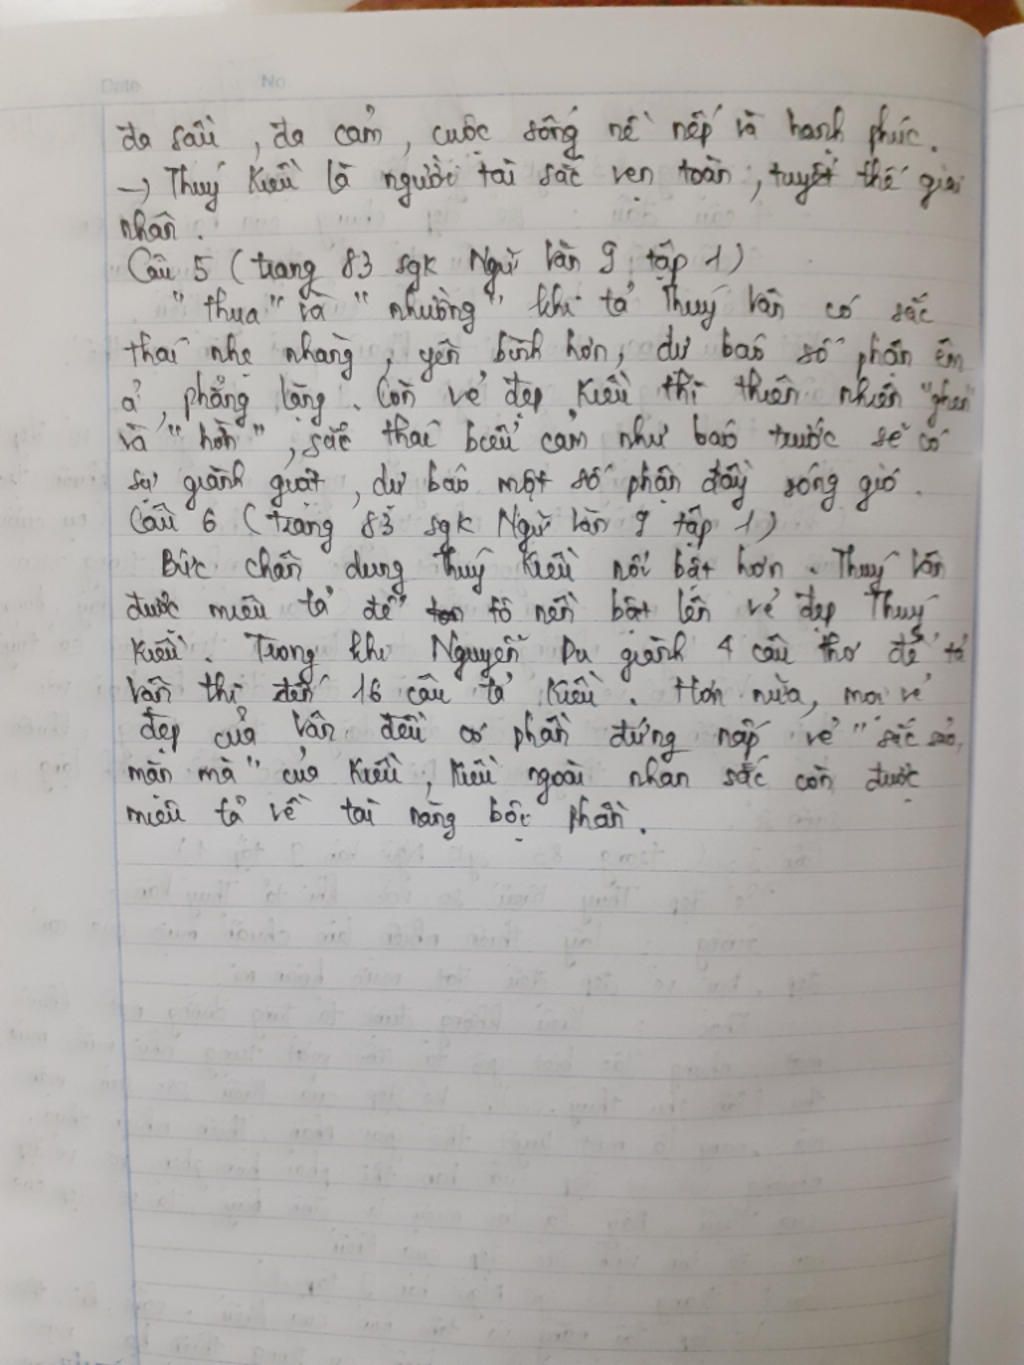 Date No
đa sầu, đa cảm, cuộc sống nề nếp và hạnh phúc.
→ Thuý Kiều là người tài sắc vẹn toàn, tuyệt thế giai
nhân.
Câu 5 (trang 83 sgk Ngữ Văn 9 tập 1)
"thua" và "nhường" khi tả Thuý Vân có sắc
thái nhẹ nhàng, yên bình hơn, dự báo số phận êm
ả, phẳng lặng. Còn vẻ đẹp Kiều thì thiên nhiên "ghen"
và "hờn", sắc thái biểu cảm như báo trước sẽ có
sự giành giật, dự báo một số phận đầy sóng gió.
Câu 6 (trang 83 sgk Ngữ Văn 9 tập 1)
Bức chân dung Thuý Kiều nổi bật hơn. Thuý Vân
được miêu tả để tô nền bật lên vẻ đẹp Thuý
Kiều. Trong khi Nguyễn Du giành 4 câu thơ để tả
Vân thì đến 16 câu tả Kiều. Hơn nữa, mọi vẻ
đẹp của Vân đều có phần đứng nấp vẻ "sắc sảo,
mặn mà" của Kiều, Kiều ngoài nhan sắc còn được
miêu tả về tài năng bội phần.